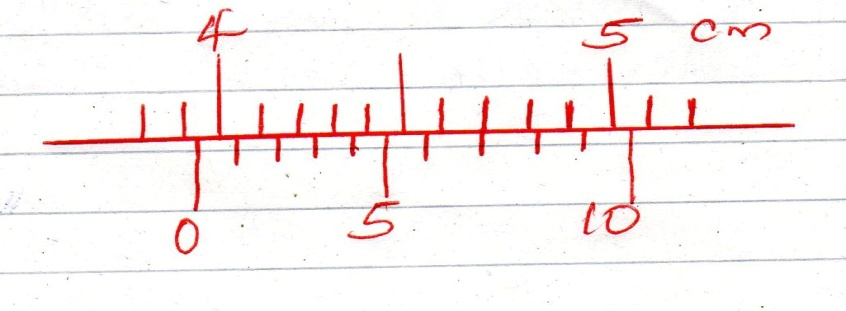 4 5 cm
0 5 10